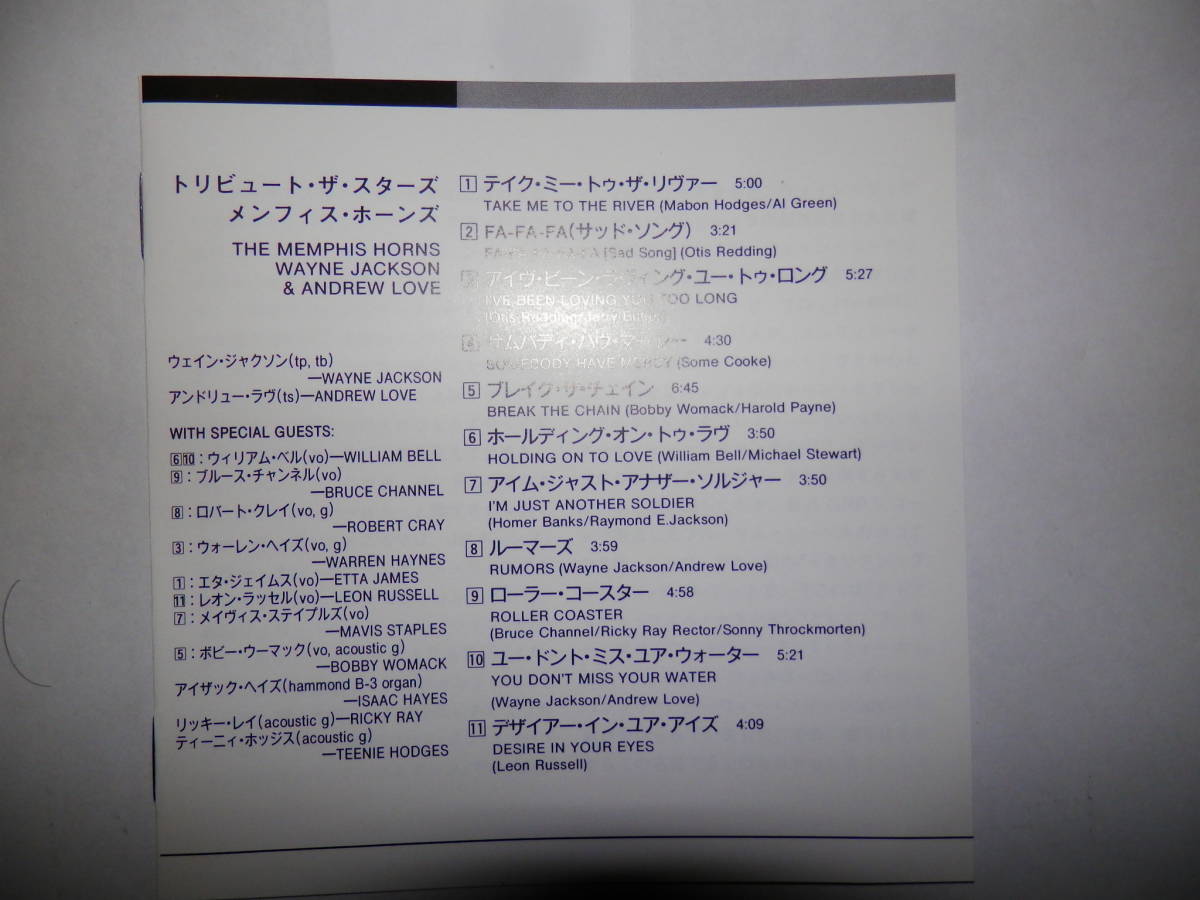 トリビュート・ザ・スターズ
メンフィス・ホーンズ
THE MEMPHIS HORNS
WAYNE JACKSON
& ANDREW LOVE
ウェイン・ジャクソン(tp, tb)
—WAYNE JACKSON
アンドリュー・ラヴ(ts)—ANDREW LOVE
WITH SPECIAL GUESTS:
6 10:ウィリアム・ベル(vo)—WILLIAM BELL
9:ブルース・チャンネル(vo)
—BRUCE CHANNEL
8:ロバート・クレイ(vo, g)
—ROBERT CRAY
3:ウォーレン・ヘイズ(vo, g)
—WARREN HAYNES
1:エタ・ジェイムス(vo)—ETTA JAMES
11:レオン・ラッセル(vo)—LEON RUSSELL
7:メイヴィス・ステイプルズ(vo)
—MAVIS STAPLES
5:ボビー・ウーマック(vo, acoustic g)
—BOBBY WOMACK
アイザック・ヘイズ(hammond B-3 organ)
—ISAAC HAYES
リッキー・レイ(acoustic g)—RICKY RAY
ティーニィ・ホッジス(acoustic g)
—TEENIE HODGES
1 テイク・ミー・トゥ・ザ・リヴァー 5:00
TAKE ME TO THE RIVER (Mabon Hodges/Al Green)
2 FA-FA-FA(サッド・ソング) 3:21
[Sad Song] (Otis Redding)
3 アイヴ・ビーン・ラヴィング・ユー・トゥ・ロング 5:27
I'VE BEEN LOVING YOU TOO LONG
(Otis Redding/Jerry Butler)
4 サムバディ・ハヴ・マーシー 4:30
SOMEBODY HAVE MERCY (Some Cooke)
5 ブレイク・ザ・チェイン 6:45
BREAK THE CHAIN (Bobby Womack/Harold Payne)
6 ホールディング・オン・トゥ・ラヴ 3:50
HOLDING ON TO LOVE (William Bell/Michael Stewart)
7 アイム・ジャスト・アナザー・ソルジャー 3:50
I'M JUST ANOTHER SOLDIER
(Homer Banks/Raymond E.Jackson)
8 ルーマーズ 3:59
RUMORS (Wayne Jackson/Andrew Love)
9 ローラー・コースター 4:58
ROLLER COASTER
(Bruce Channel/Ricky Ray Rector/Sonny Throckmorten)
10 ユー・ドント・ミス・ユア・ウォーター 5:21
YOU DON'T MISS YOUR WATER
(Wayne Jackson/Andrew Love)
11 デザイアー・イン・ユア・アイズ 4:09
DESIRE IN YOUR EYES
(Leon Russell)